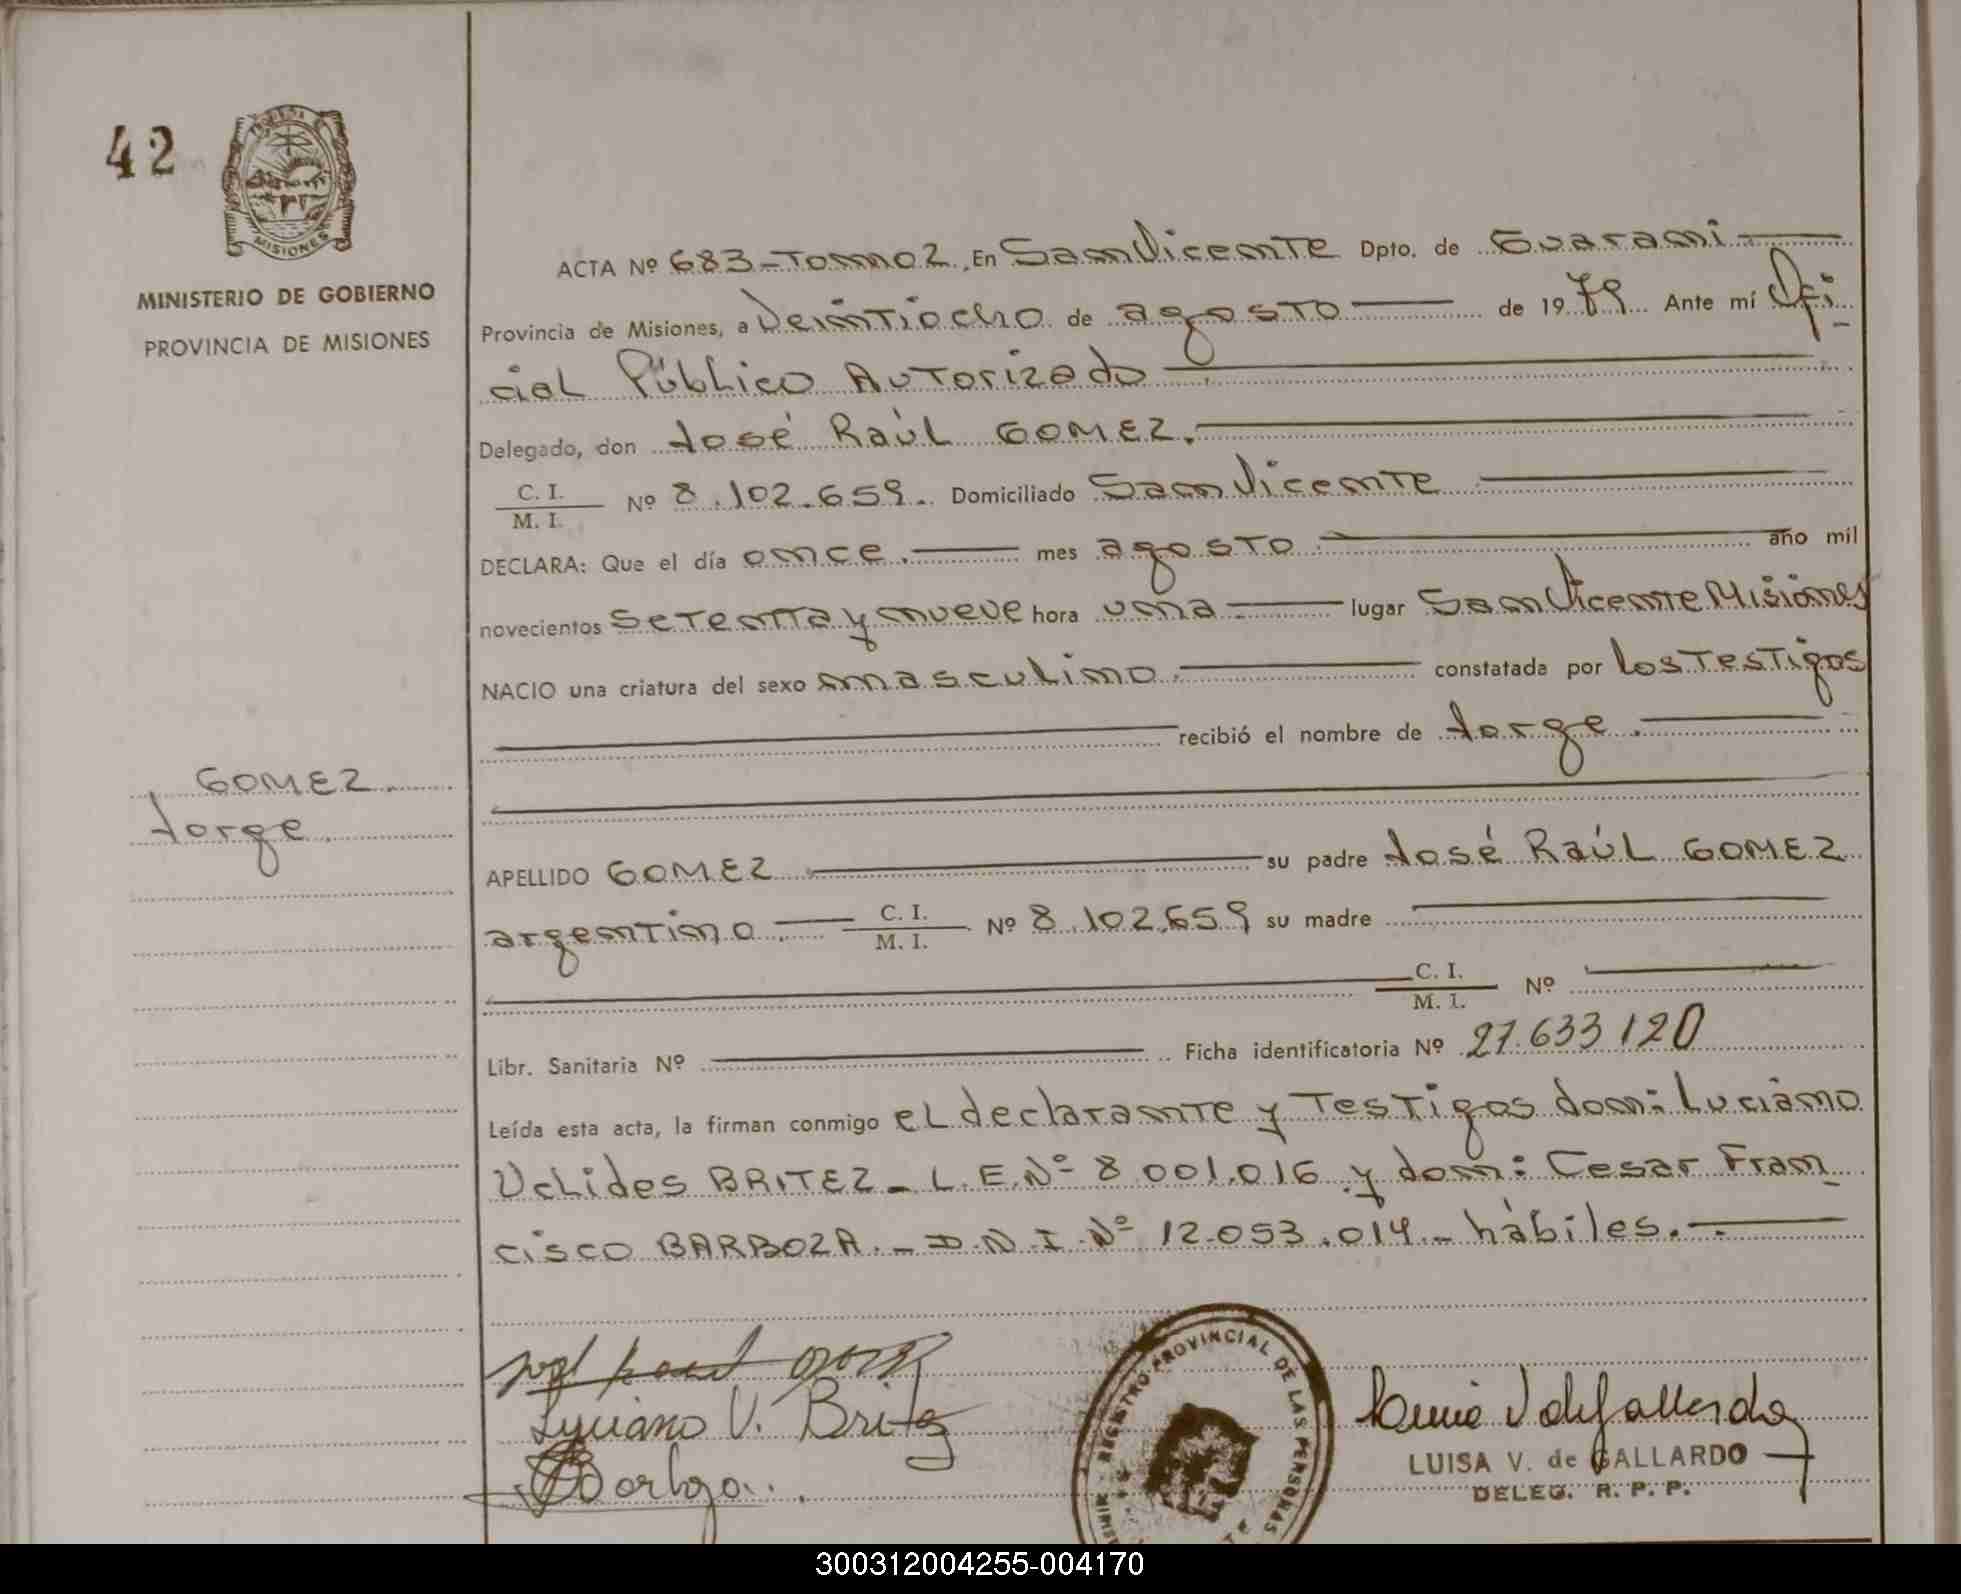 42
MISIONES
MINISTERIO DE GOBIERNO
PROVINCIA DE MISIONES
ACTA Nº 683-Tomo 2, En San Vicente Dpto. de Guarani
Provincia de Misiones, a Veintiocho de agosto de 1979 Ante mí Ofi-
cial Público Autorizado
Delegado, don José Raúl GOMEZ.
C. I.
M. I. Nº 8.102.659. Domiciliado San Vicente
DECLARA: Que el día once. mes agosto año mil
novecientos setenta y nueve hora una lugar San Vicente Misiones
NACIO una criatura del sexo masculino. constatada por los Testigos
recibió el nombre de Jorge.
GOMEZ.
Jorge.
APELLIDO GOMEZ su padre José Raúl GOMEZ
argentino C. I. M. I. Nº 8.102.659 su madre
C. I. M. I. Nº
Libr. Sanitaria Nº Ficha identificatoria Nº 27.633 120
Leída esta acta, la firman conmigo el declarante y Testigos don: Luciano
Uclides BRITEZ - L.E.Nº 8.001.016 y don: Cesar Fran-
cisco BARBOZA. - D.N.I.Nº 12.053.014 - hábiles.
Luciano V. Britez
REGISTRO PROVINCIAL DE LAS PERSONAS
LUISA V. de GALLARDO
DELEG. R. P. P.
300312004255-004170